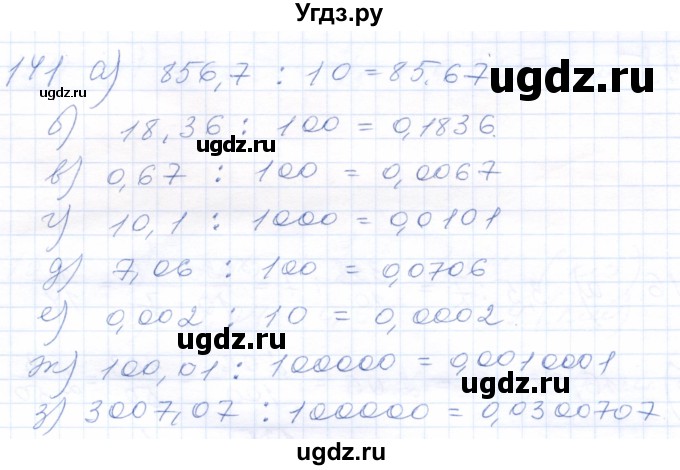 Угдз.ру
141 а) 856,7 : 10 = 85,67
ugdz.ru ugdz.ru
б) 18,36 : 100 = 0,1836.
ugdz.ru ugdz.ru
в) 0,67 : 100 = 0,0067
г) 10,1 : 1000 = 0,0101
ugdz.ru
д) 7,06 : 100 = 0,0706
ugdz.ru
е) 0,002 : 10 = 0,0002.
ugdz.ru
ж) 100,01 : 100000 = 0,0010001
ugdz.ru
з) 3007,07 : 100000 = 0,0300707
ugdz.ru ugdz.ru